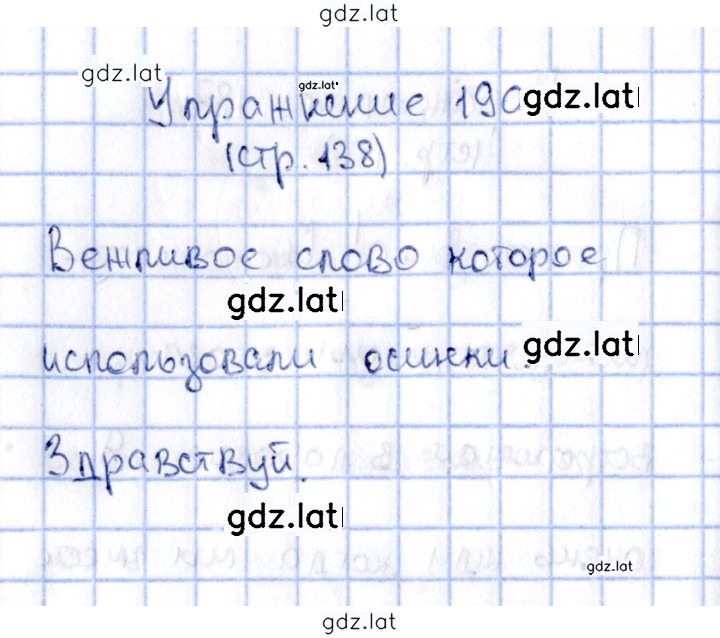 gdz.lat
gdz.lat
gdz.lat
Упражнение 190 gdz.lat
(стр. 138)
Вежливое слово которое
gdz.lat
использовали осинки. gdz.lat
Здравствуй.
gdz.lat
gdz.lat
gdz.lat